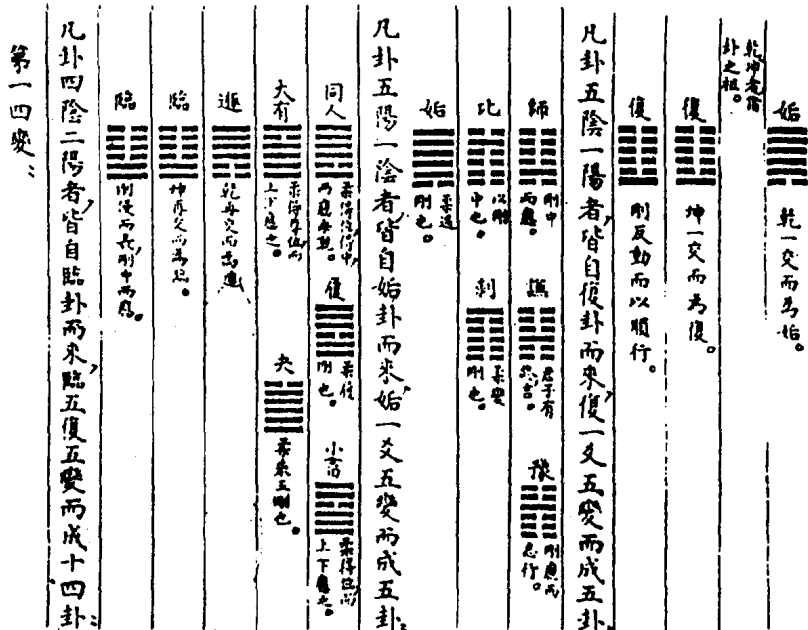 姤
乾一交而為姤。
乾坤者諸
卦之祖。
復
坤一交而為復。
復
剛反動而以順行。
凡卦五陰一陽者,皆自復卦而來,復一爻五變而成五卦:
師
剛中
而應。
謙
君子有
豫
剛應而
志行。
比
以剛
中也。
剝
柔變
剛也。
姤
柔遇
剛也。
凡卦五陽一陰者,皆自姤卦而來,姤一爻五變而成五卦:
同人
柔得位得中,
而應乎乾。
履
柔履
剛也。
小畜
柔得位而
上下應之。
大有
柔得尊位而
上下應之。
夬
柔乘五剛也。
遯
乾再交而為遯
臨
坤再交而為臨。
臨
剛浸而長,剛中而應。
凡卦四陰二陽者,皆自臨卦而來,臨五復五變而成十四卦:
第一四變: